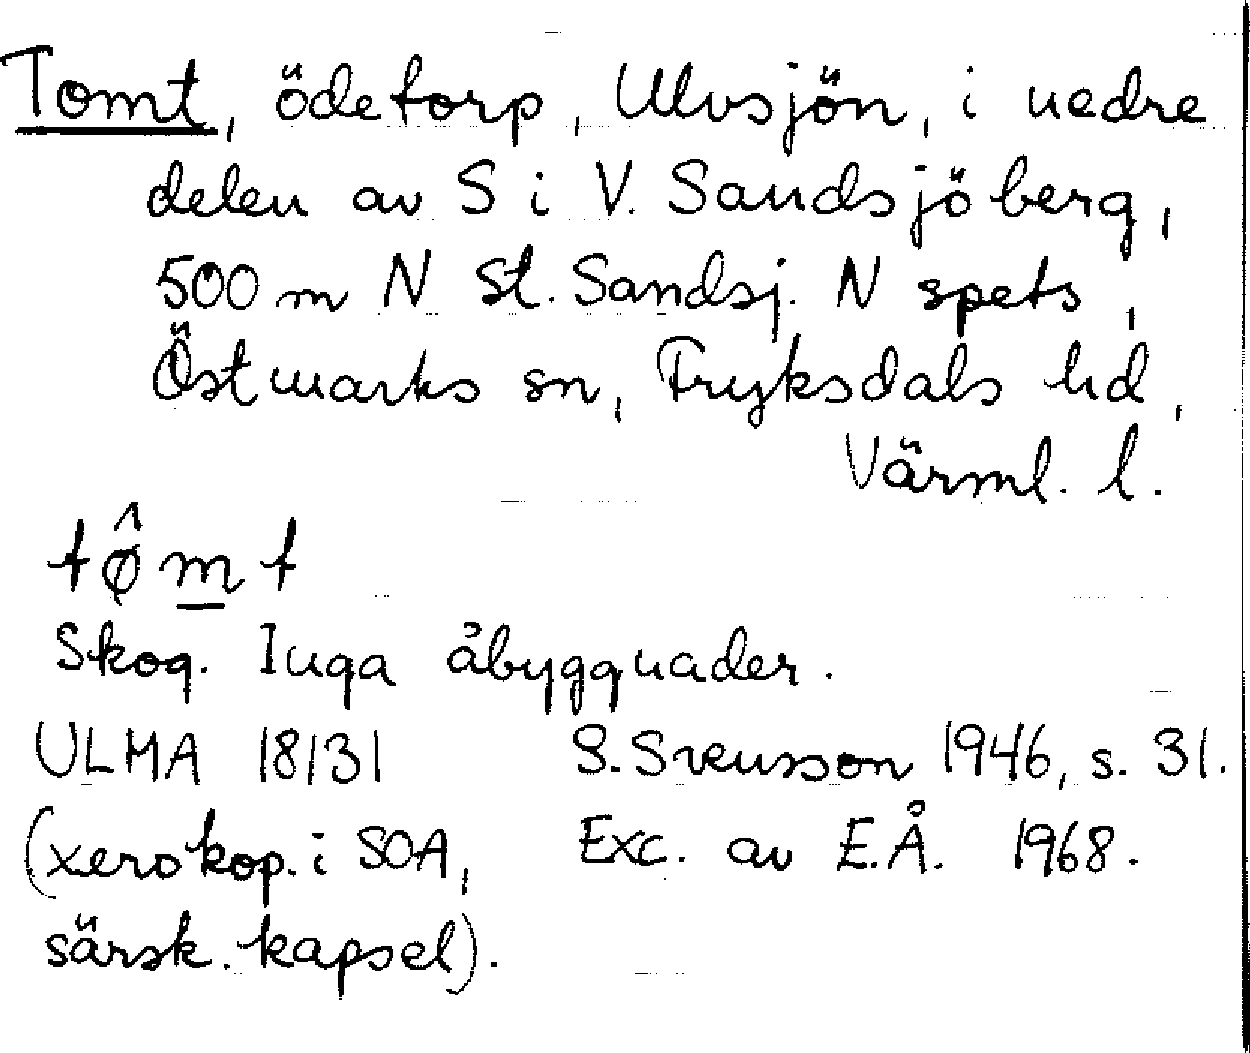 Tomt, ödetorp, Ulvsjön, i nedre
delen av S i V. Sandsjöberg,
500 m N St. Sandsj. N spets,
Östmarks sn, Fryksdals hd,
Värml. l.
tø̂m̲t
Skog. Inga åbyggnader.
ULMA 18131 S. Svensson 1946, s. 31.
(xerokop. i SOA, Exc. av E.Å. 1968.
särsk. kapsel).